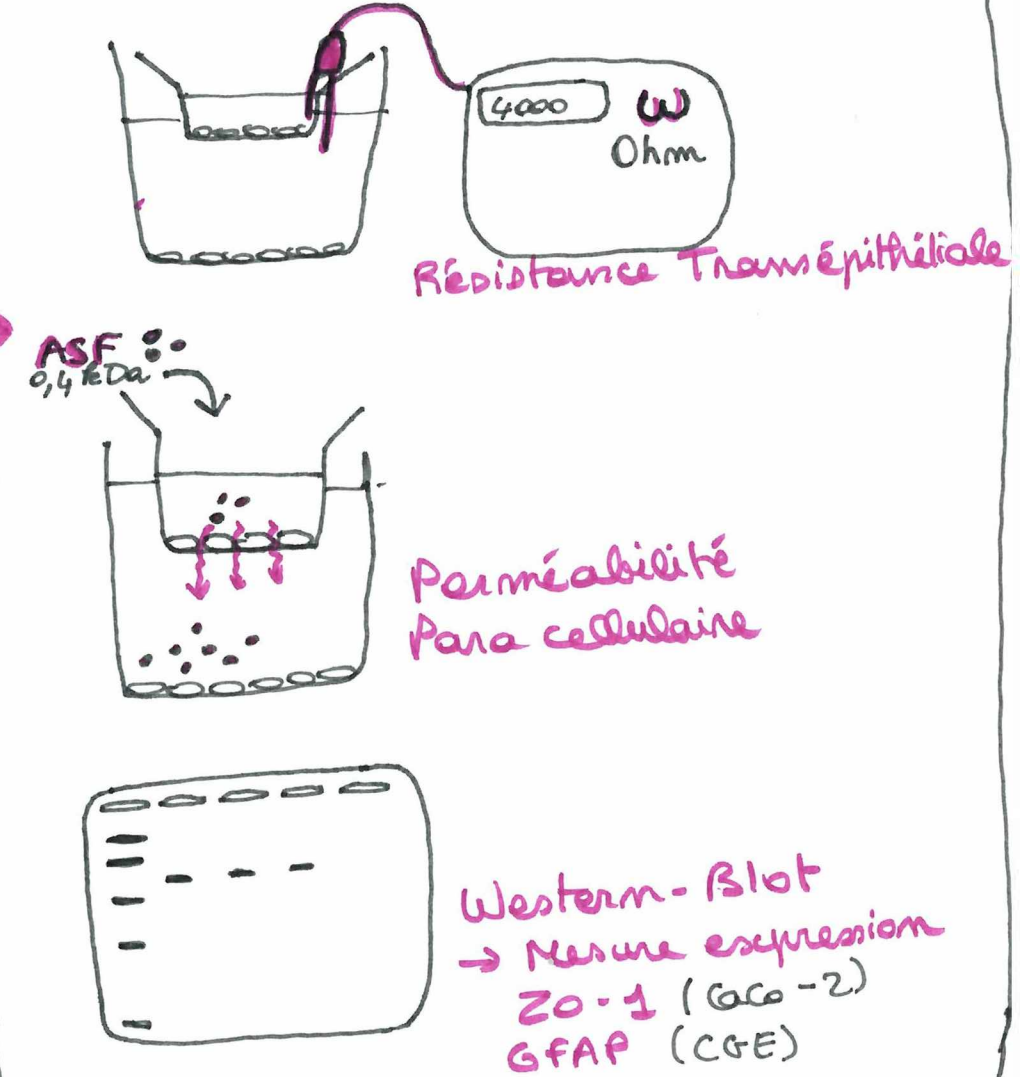 4000 ω
Ohm
Résistance Transépithéliale
ASF
0,4 kDa
Perméabilité
Para cellulaire
Western-Blot
→ Mesure expression
ZO-1 (CaCo-2)
GFAP (CGE)